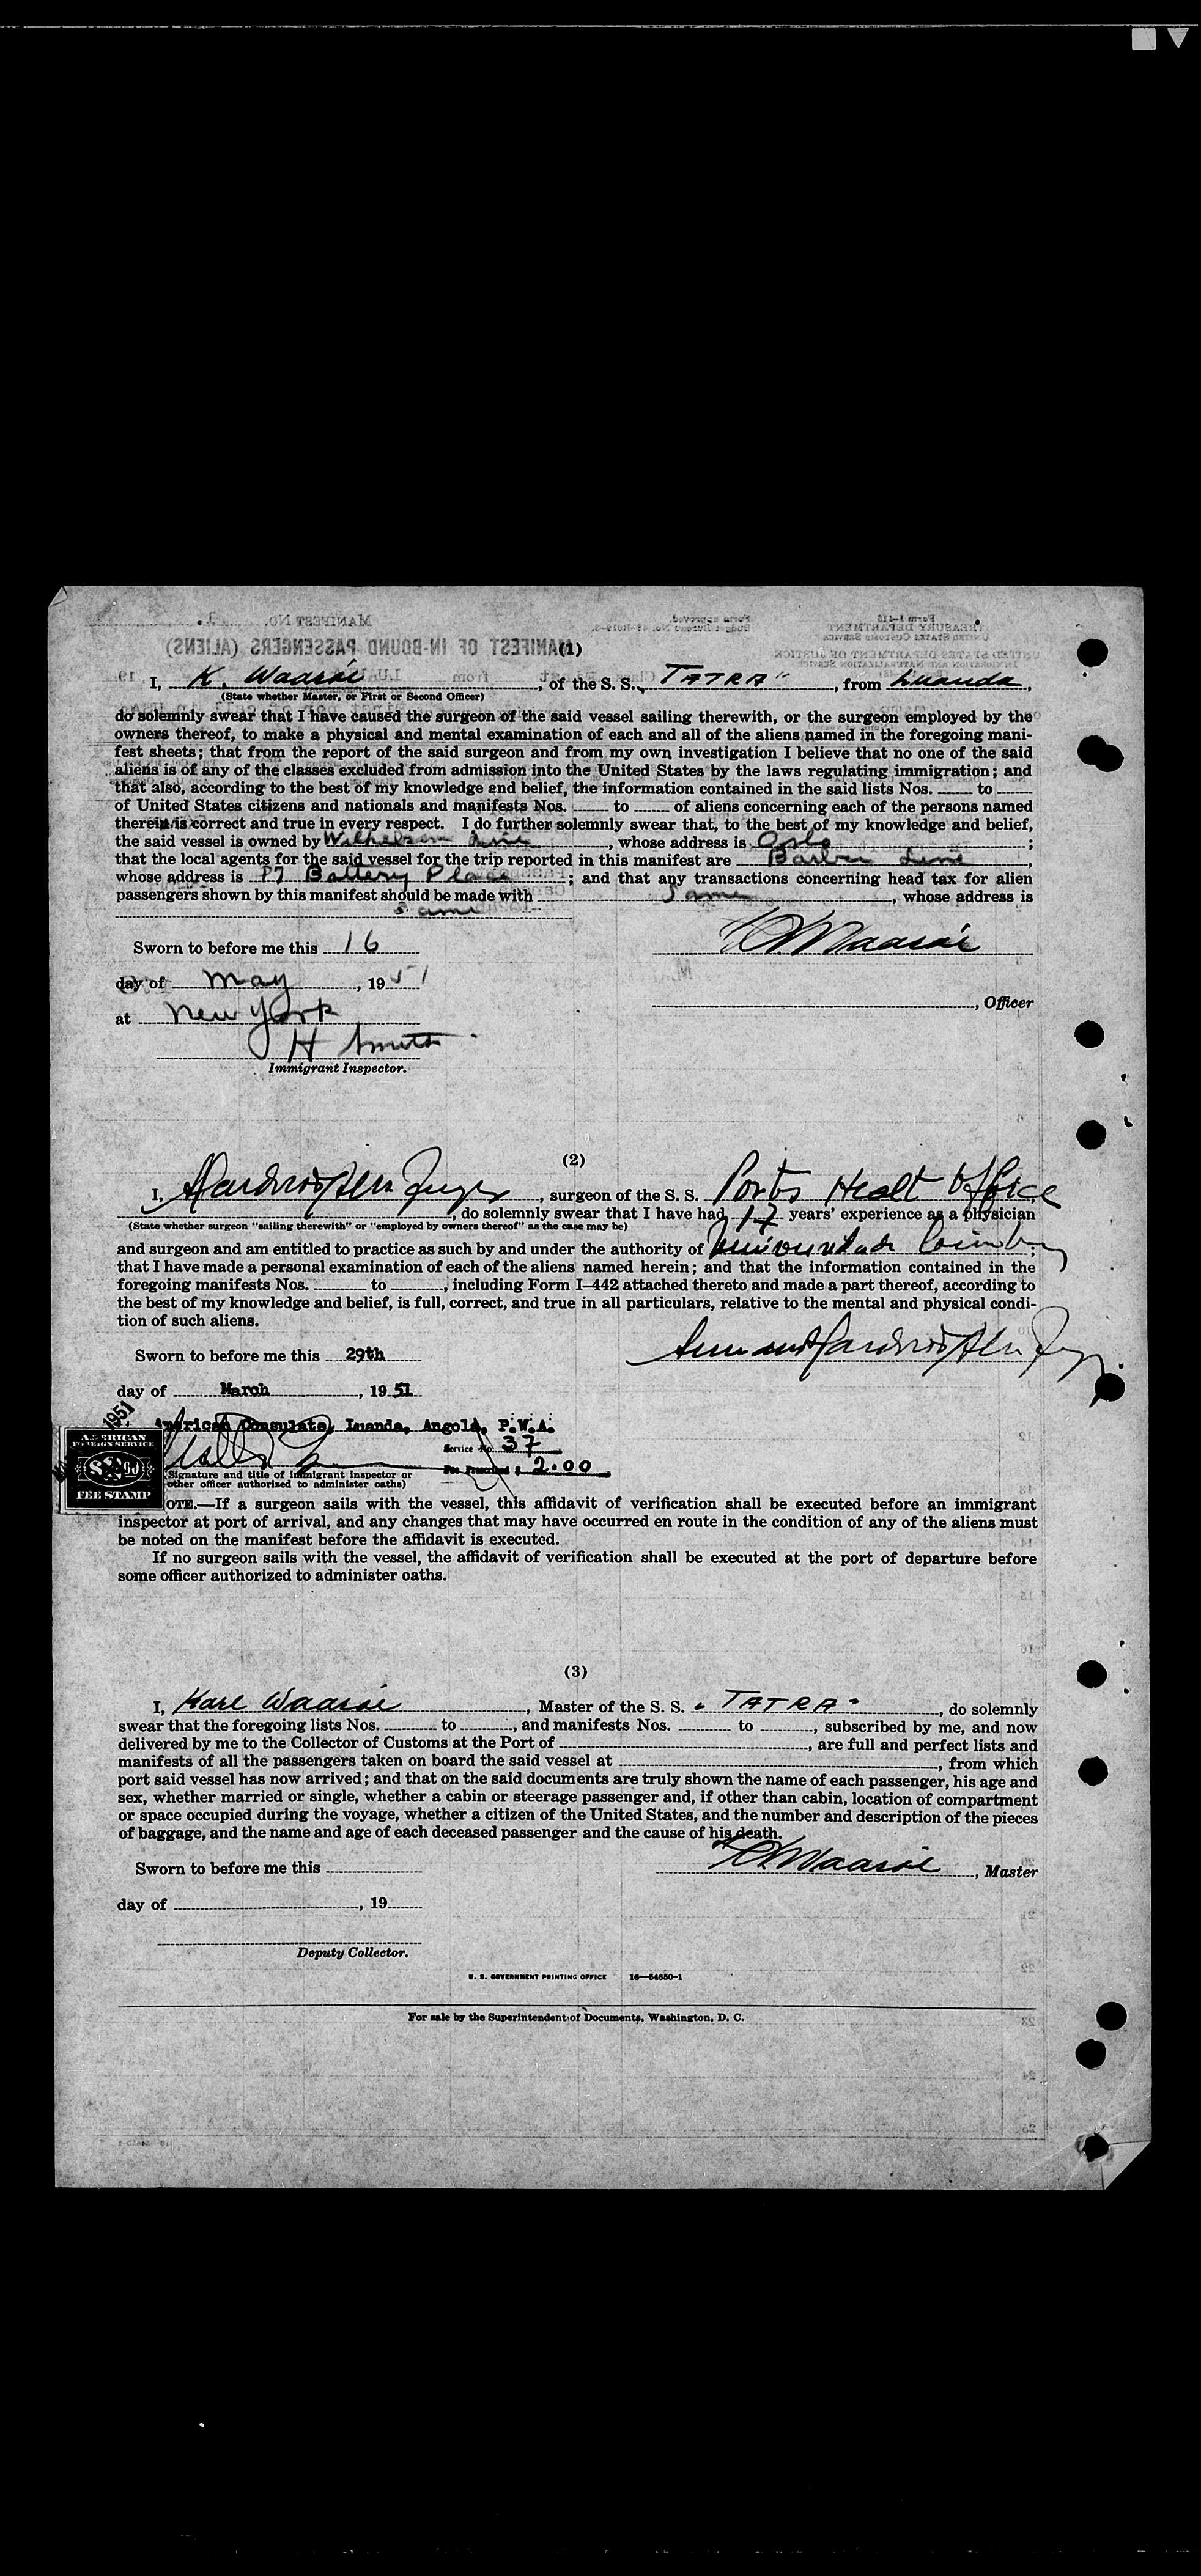 (1)
I, K. Waarøe, of the S. S. "TATRA", from Luanda,
(State whether Master, or First or Second Officer)
do solemnly swear that I have caused the surgeon of the said vessel sailing therewith, or the surgeon employed by the
owners thereof, to make a physical and mental examination of each and all of the aliens named in the foregoing mani-
fest sheets; that from the report of the said surgeon and from my own investigation I believe that no one of the said
aliens is of any of the classes excluded from admission into the United States by the laws regulating immigration; and
that also, according to the best of my knowledge and belief, the information contained in the said lists Nos. ____ to ____
of United States citizens and nationals and manifests Nos. ____ to ____ of aliens concerning each of the persons named
therein is correct and true in every respect. I do further solemnly swear that, to the best of my knowledge and belief,
the said vessel is owned by Wilhelsen Line, whose address is Oslo;
that the local agents for the said vessel for the trip reported in this manifest are Barber Line,
whose address is 17 Battery Place; and that any transactions concerning head tax for alien
passengers shown by this manifest should be made with Same, whose address is
same
Sworn to before me this 16
day of May, 1951
, Officer
at New York
H Smith
Immigrant Inspector.
(2)
I, , surgeon of the S. S. Ports Healt Office
, do solemnly swear that I have had 17 years' experience as a physician
(State whether surgeon "sailing therewith" or "employed by owners thereof" as the case may be)
and surgeon and am entitled to practice as such by and under the authority of
that I have made a personal examination of each of the aliens named herein; and that the information contained in the
foregoing manifests Nos. ____ to ____, including Form I-442 attached thereto and made a part thereof, according to
the best of my knowledge and belief, is full, correct, and true in all particulars, relative to the mental and physical condi-
tion of such aliens.
Sworn to before me this 29th
day of March, 1951
1951
American Consulate, Luanda, Angola, P.W.A.
Service No. 37
Fee Prescribed $ 2.00
AMERICAN
FOREIGN SERVICE
$2.00
FEE STAMP
(Signature and title of immigrant inspector or
other officer authorized to administer oaths)
OTE.—If a surgeon sails with the vessel, this affidavit of verification shall be executed before an immigrant
inspector at port of arrival, and any changes that may have occurred en route in the condition of any of the aliens must
be noted on the manifest before the affidavit is executed.
If no surgeon sails with the vessel, the affidavit of verification shall be executed at the port of departure before
some officer authorized to administer oaths.
(3)
I, Karl Waarøe, Master of the S. S. "TATRA", do solemnly
swear that the foregoing lists Nos. ____ to ____, and manifests Nos. ____ to ____, subscribed by me, and now
delivered by me to the Collector of Customs at the Port of ____, are full and perfect lists and
manifests of all the passengers taken on board the said vessel at ____, from which
port said vessel has now arrived; and that on the said documents are truly shown the name of each passenger, his age and
sex, whether married or single, whether a cabin or steerage passenger and, if other than cabin, location of compartment
or space occupied during the voyage, whether a citizen of the United States, and the number and description of the pieces
of baggage, and the name and age of each deceased passenger and the cause of his death.
Sworn to before me this ____
K Waarøe, Master
day of ____, 19__
Deputy Collector.
U. S. GOVERNMENT PRINTING OFFICE 16—54650-1
For sale by the Superintendent of Documents, Washington, D. C.